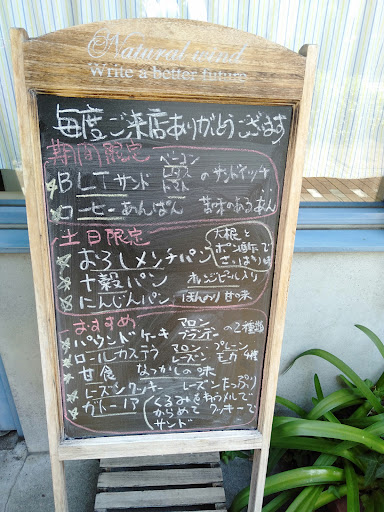 Natural wind
Write a better future
毎度ご来店ありがとうございます
期間限定
BLTサンド ベーコン レタス トマト のサンドイッチ
コーヒーあんぱん 苦味のあるあん
土日限定
おろしメンチパン 大根とポン酢でさっぱり味
十穀パン オレンジピール入り
にんじんパン ほんのり甘味
おすすめ
パウンドケーキ マロン ブランデー の2種類
ロールカステラ マロン・プレーン レーズン モカ 4種
甘食 なつかしの味
レーズンクッキー レーズンたっぷり
ガトーノア くるみをキャラメルでからめてクッキーでサンド